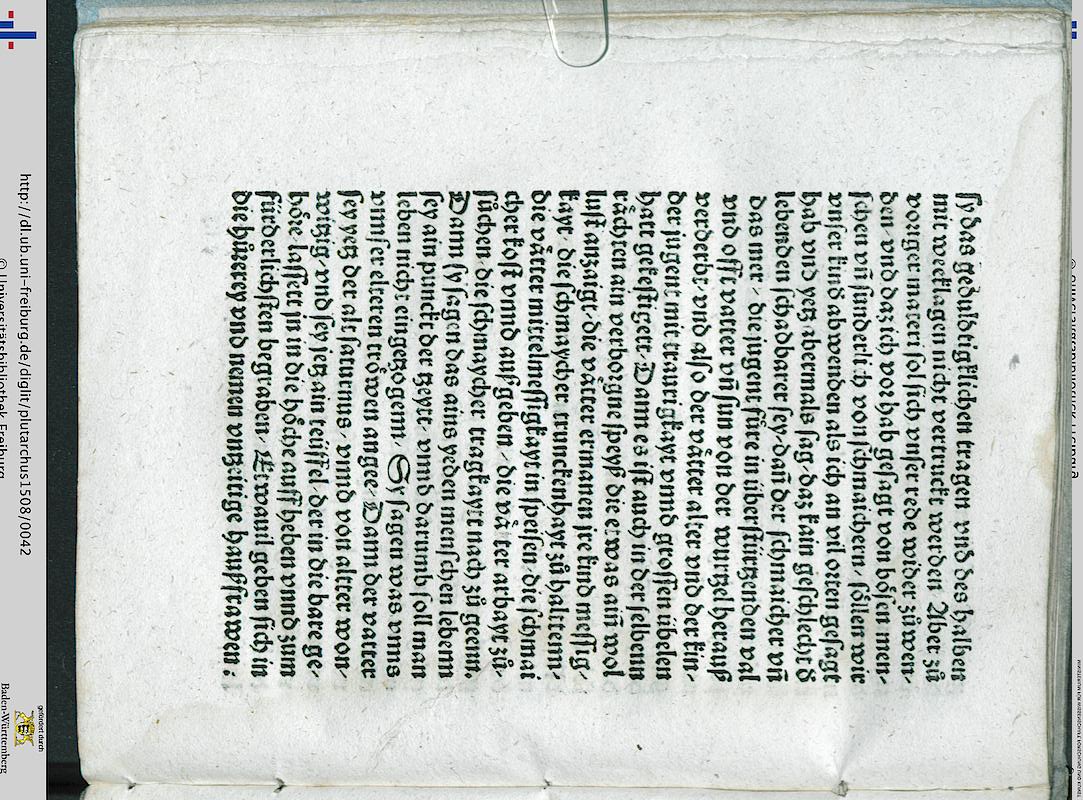 sy das geduldtigklichen tragen vnd des halben
mit weeklagen nicht vertruckt werden Aber zů
voriger materi sol sich vnser rede wider zůwen-
den vnd daz ich vor hab gesagt von bösen men-
schen vñ sunderlich von schmaichern, söllen wir
vnser kind abwenden als ich an vil orten gesagt
hab vnd yetz abermals sag, daz kain geschlecht d̃
lebenden schadbarer sey, dañ der schmaicher vñ
das mer, die jugent füre in überstürtzenden val
vnd offt vatter vñ sun von der wurtzel herauß
verderbt, vnd also der våtter alter vnd der kin-
der jugent mit traurigkayt vnnd grossen übelen
hart gekestigett, Dann es ist auch in der selbenn
rächten ain verborgne speyß die etwas añ wol
lust anzaigt, die våtter ermanen jre kind messig-
kayt, die schmaycher trunckenhayt zů halttenn,
die våtter mittelmessigkayt in speisen, die schmai
cher kost vnnd außgeben, die våtter arbayt zů-
sůchen, die schmaycher tragkaytt nach zů geenn,
Dann sy sagen das ains yeden menschen lebenn
sey ain punckt der zeytt, vnnd darumb soll man
leben nicht eingetzogenn, Sy sagen was vnns
vmser eltteren tröwen angee, Dann der vatter
sey yetz der alt saturnus, vnnd von altter won-
witzig, vnd sey jetz ain teüffel, der in die bare ge-
höre, lassett jn in die höche auff heben vnnd zum
fürderlichsten begraben, Etwauil geben sich in
die hůrerey vnd nemen vnzitige haußfrawen:
http://dl.ub.uni-freiburg.de/diglit/plutarchus1508/0042
© Universitätsbibliothek Freiburg
gefördert durch
Baden-Württemberg